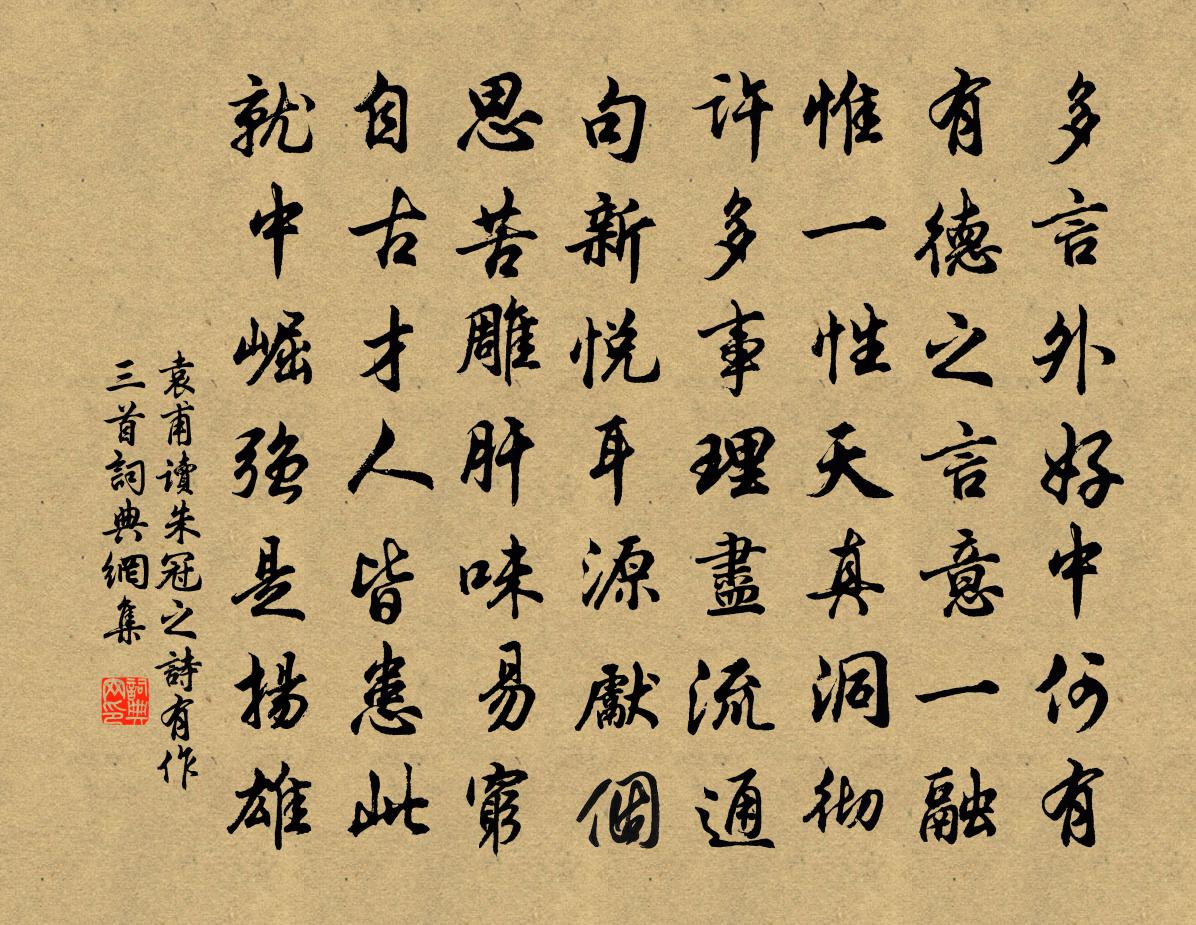 多言外好中何有
有德之言意一融
惟一性天真洞彻
许多事理盡流通
句新悦耳源獻個
思苦雕肝味易窮
自古才人皆患此
就中崛强是揚雄
袁甫讀朱冠之詩有作
三首詞典網集
詞典
网印